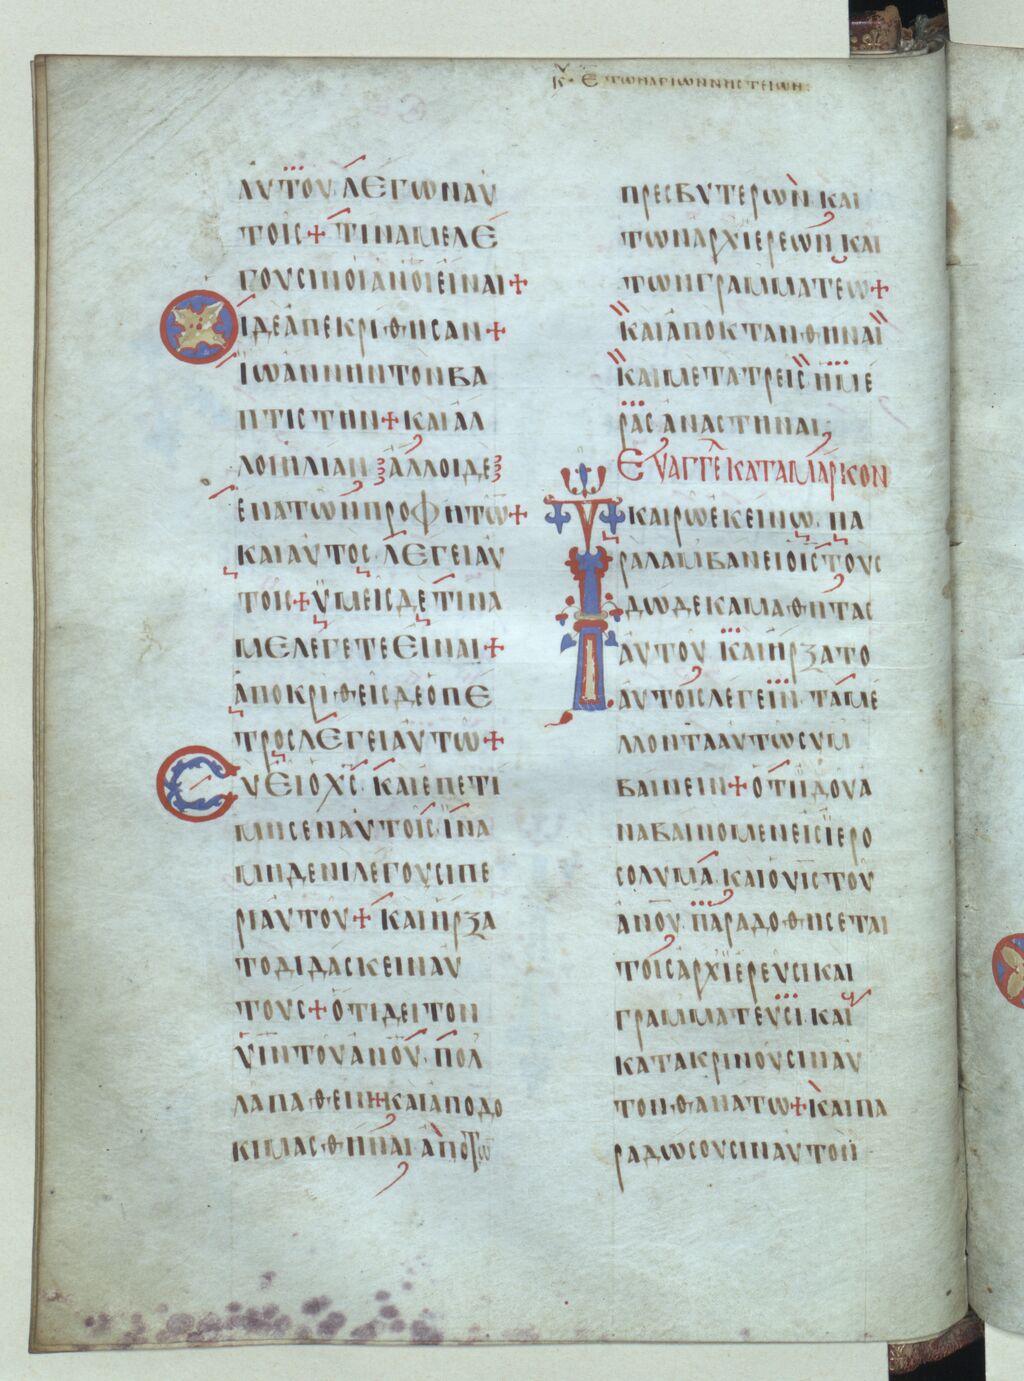 Κυ. Ε ΤΩΝ ΑΓΙΩΝ ΝΗΣΤΕΙΩΝ:
ΑΥΤΟΥ ΛΕΓΩΝ ΑΥ
ΤΟΙΣ + ΤΙΝΑ ΜΕ ΛΕ
ΓΟΥΣΙΝ ΟΙ ΑΝΟΙ ΕΙΝΑΙ +
ΟΙ ΔΕ ΑΠΕΚΡΙΘΗΣΑΝ +
ΙΩΑΝΝΗΝ ΤΟΝ ΒΑ
ΠΤΙΣΤΗΝ + ΚΑΙ ΑΛ
ΛΟΙ ΗΛΙΑΝ ΑΛΛΟΙ ΔΕ
ΕΝΑ ΤΩΝ ΠΡΟΦΗΤΩ̅ +
ΚΑΙ ΑΥΤΟΣ ΛΕΓΕΙ ΑΥ
ΤΟΙΣ + ΥΜΕΙΣ ΔΕ ΤΙΝΑ
ΜΕ ΛΕΓΕΤΕ ΕΙΝΑΙ +
ΑΠΟΚΡΙΘΕΙΣ ΔΕ Ο ΠΕ
ΤΡΟΣ ΛΕΓΕΙ ΑΥΤΩ +
ΣΥ ΕΙ Ο ΧΣ. ΚΑΙ ΕΠΕΤΙ
ΜΗΣΕΝ ΑΥΤΟΙΣ ΙΝΑ
ΜΗΔΕΝΙ ΛΕΓΟΥΣΙ ΠΕ
ΡΙ ΑΥΤΟΥ + ΚΑΙ ΗΡΞΑ
ΤΟ ΔΙΔΑΣΚΕΙΝ ΑΥ
ΤΟΥΣ + ΟΤΙ ΔΕΙ ΤΟΝ
ΥΙΝ ΤΟΥ ΑΝΟΥ. ΠΟΛ
ΛΑ ΠΑΘΕΙΝ + ΚΑΙ ΑΠΟΔΟ
ΚΙΜΑΣΘΗΝΑΙ ΑΠΟ ΤΩ̅
ΠΡΕΣΒΥΤΕΡΩΝ. ΚΑΙ
ΤΩΝ ΑΡΧΙΕΡΕΩΝ. ΚΑΙ
ΤΩΝ ΓΡΑΜΜΑΤΕΩ +
ΚΑΙ ΑΠΟΚΤΑΝΘΗΝΑΙ
ΚΑΙ ΜΕΤΑ ΤΡΕΙΣ ΗΜΕ
ΡΑΣ ΑΝΑΣΤΗΝΑΙ,
ΕΥΑΓΓΕ ΚΑΤΑ ΜΑΡΚΟΝ
Τ ΚΑΙΡΩ ΕΚΕΙΝΩ. ΠΑ
ΡΑΛΑΜΒΑΝΕΙ Ο ΙΣ ΤΟΥΣ
ΔΩΔΕΚΑ ΜΑΘΗΤΑΣ
ΑΥΤΟΥ. ΚΑΙ ΗΡΞΑΤΟ
ΑΥΤΟΙΣ ΛΕΓΕΙΝ. ΤΑ ΜΕ
ΛΛΟΝΤΑ ΑΥΤΩ ΣΥΜ
ΒΑΙΝΕΙΝ + ΟΤΙ ΙΔΟΥ Α
ΝΑΒΑΙΝΟΜΕΝ ΕΙΣ ΙΕΡΟ
ΣΟΛΥΜΑ. ΚΑΙ Ο ΥΙΣ ΤΟΥ
ΑΝΟΥ. ΠΑΡΑΔΟΘΗΣΕΤΑΙ
ΤΟΙΣ ΑΡΧΙΕΡΕΥΣΙ ΚΑΙ
ΓΡΑΜΜΑΤΕΥΣΙ. ΚΑΙ
ΚΑΤΑΚΡΙΝΟΥΣΙΝ ΑΥ
ΤΟΝ ΘΑΝΑΤΩ + ΚΑΙ ΠΑ
ΡΑΔΩΣΟΥΣΙΝ ΑΥΤΟΝ